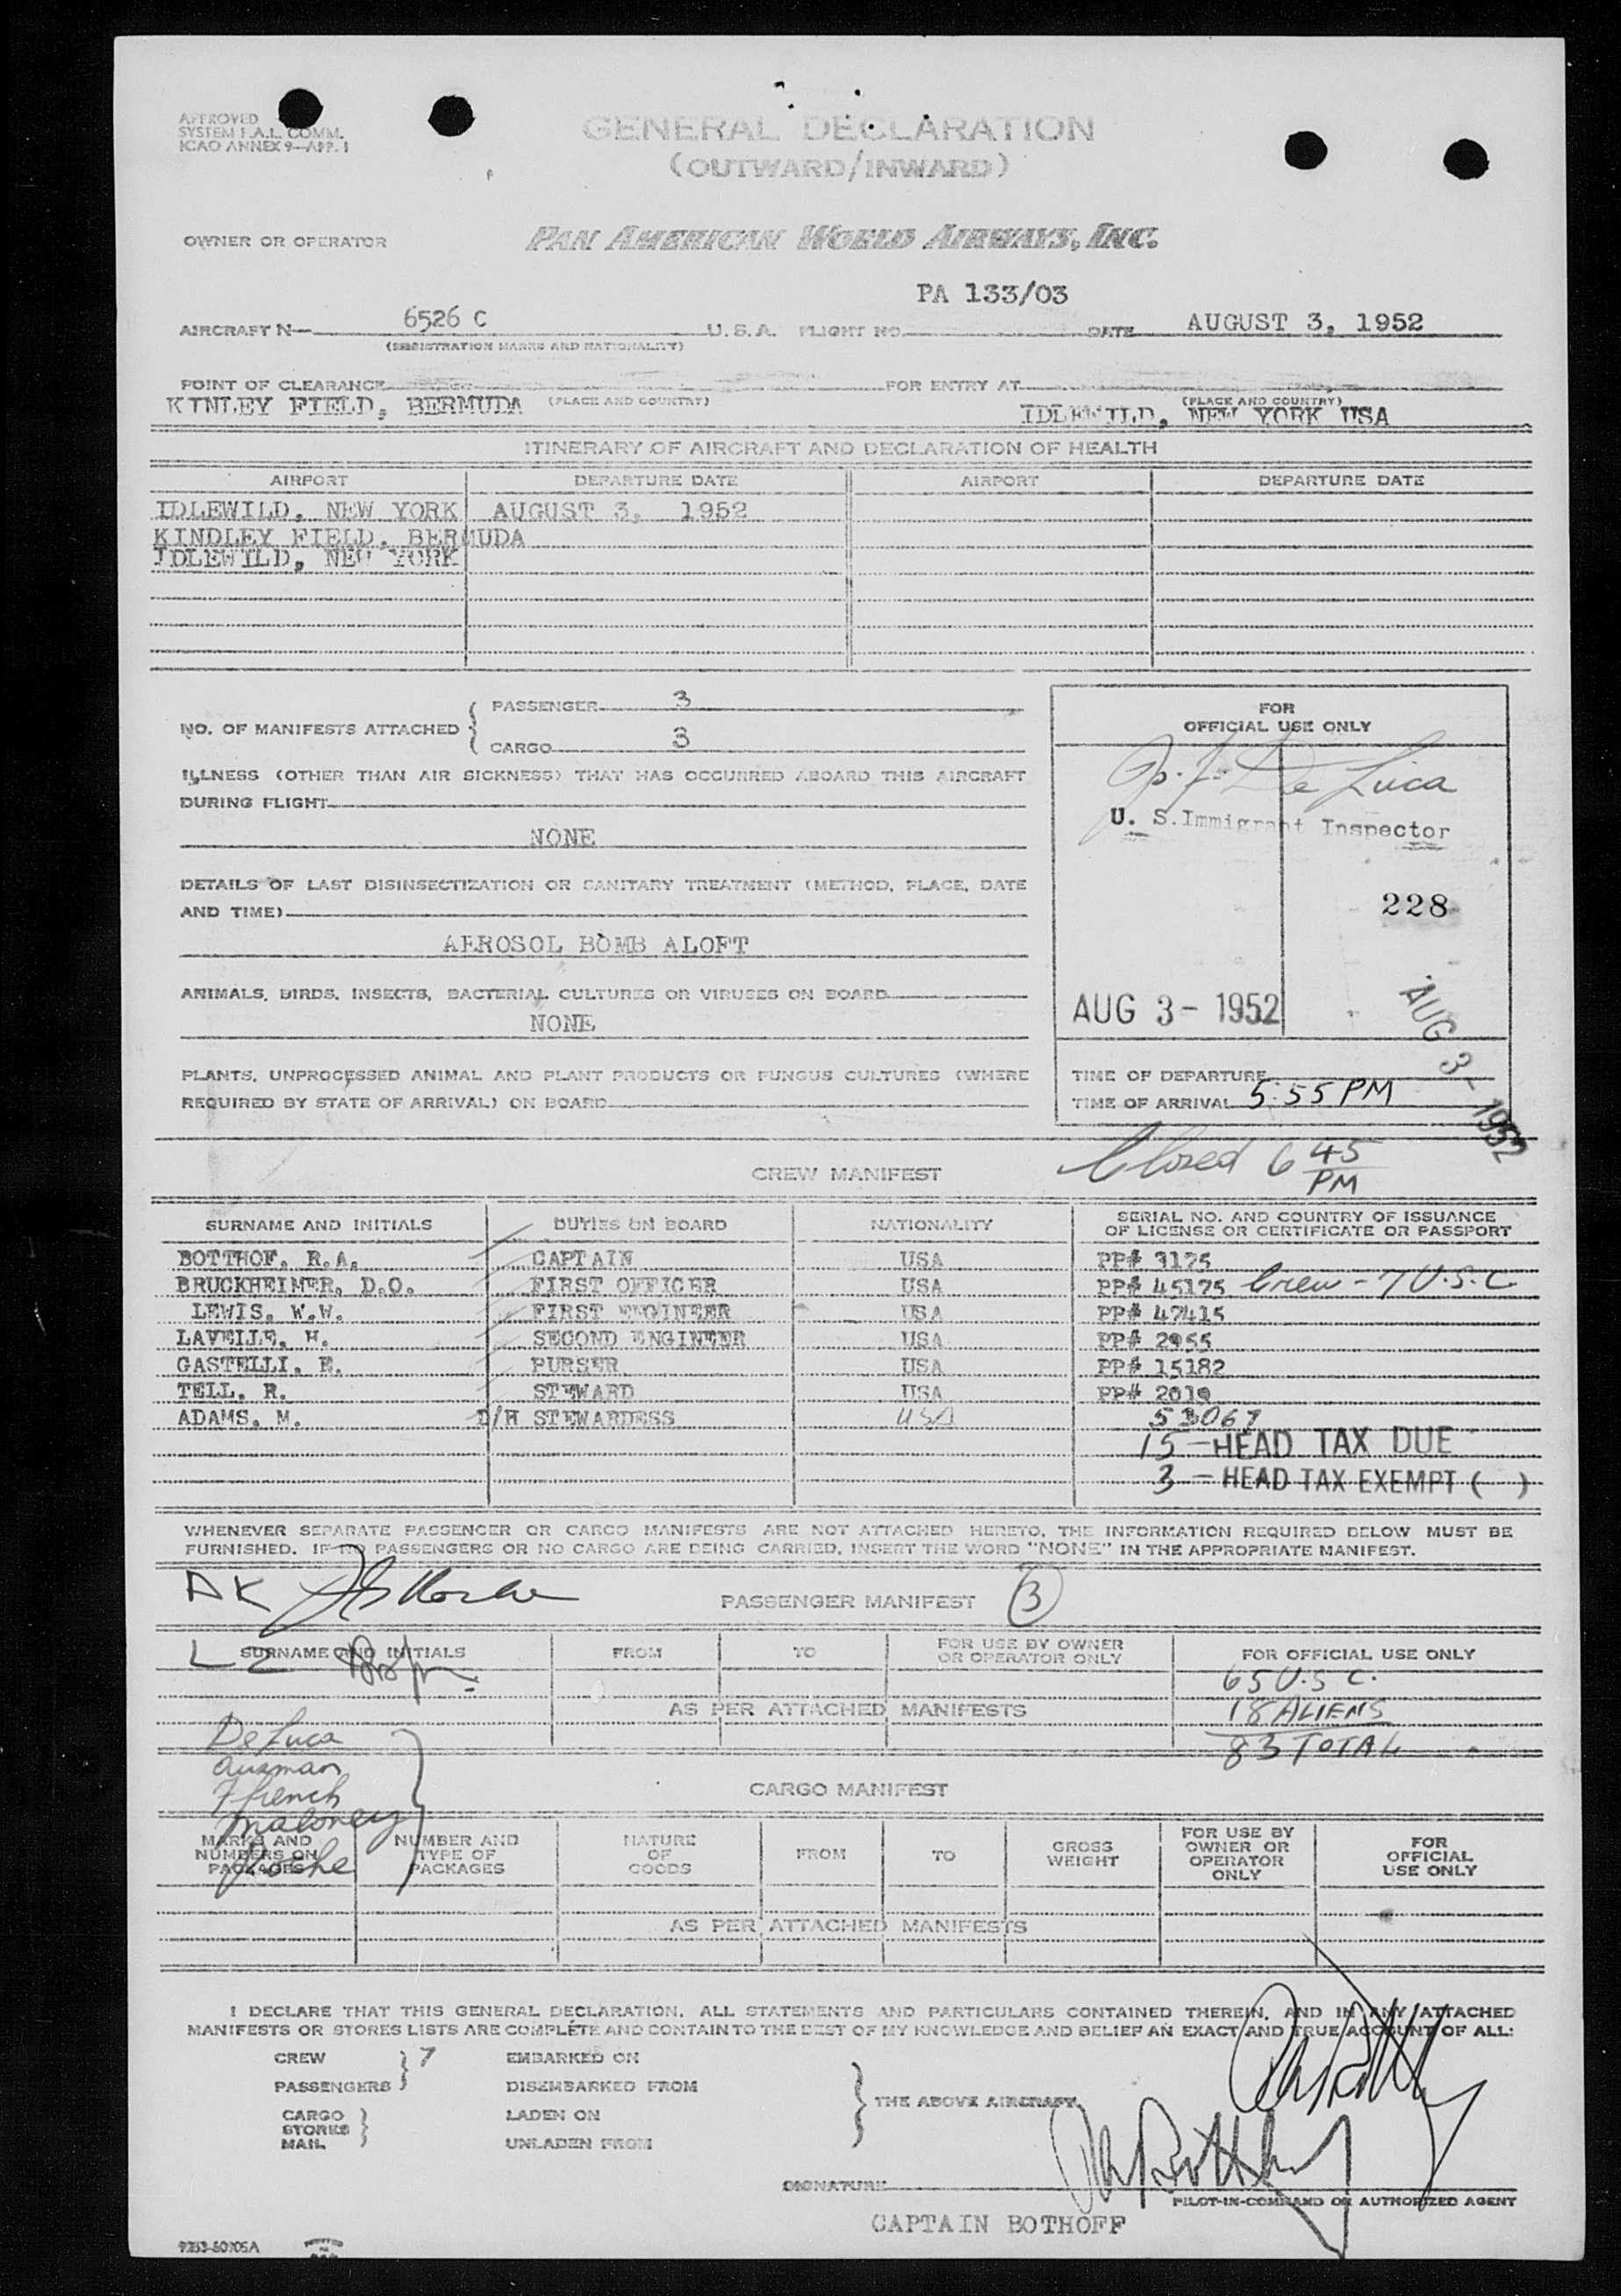 APPROVED
SYSTEM F.A.L. COMM.
ICAO ANNEX 9—APP. 1
GENERAL DECLARATION
(OUTWARD/INWARD)
OWNER OR OPERATOR
PAN AMERICAN WORLD AIRWAYS, INC.
PA 133/03
AIRCRAFT N— 6526 C U.S.A. FLIGHT NO. DATE AUGUST 3, 1952
(REGISTRATION MARKS AND NATIONALITY)
POINT OF CLEARANCE FOR ENTRY AT
KINLEY FIELD, BERMUDA (PLACE AND COUNTRY) (PLACE AND COUNTRY)
IDLEWILD, NEW YORK USA
ITINERARY OF AIRCRAFT AND DECLARATION OF HEALTH
AIRPORT DEPARTURE DATE AIRPORT DEPARTURE DATE
IDLEWILD, NEW YORK AUGUST 3, 1952
KINDLEY FIELD, BERMUDA
IDLEWILD, NEW YORK
NO. OF MANIFESTS ATTACHED
PASSENGER 3
CARGO 3
ILLNESS (OTHER THAN AIR SICKNESS) THAT HAS OCCURRED ABOARD THIS AIRCRAFT
DURING FLIGHT
NONE
DETAILS OF LAST DISINSECTIZATION OR SANITARY TREATMENT (METHOD, PLACE, DATE
AND TIME)
AEROSOL BOMB ALOFT
ANIMALS, BIRDS, INSECTS, BACTERIAL CULTURES OR VIRUSES ON BOARD
NONE
PLANTS, UNPROCESSED ANIMAL AND PLANT PRODUCTS OR FUNGUS CULTURES (WHERE
REQUIRED BY STATE OF ARRIVAL) ON BOARD
FOR
OFFICIAL USE ONLY
De Luca
U. S. Immigrant Inspector
228
AUG 3 - 1952
AUG 3 - 1952
TIME OF DEPARTURE
TIME OF ARRIVAL 5:55 PM
Closed 6 45 PM
CREW MANIFEST
SURNAME AND INITIALS DUTIES ON BOARD NATIONALITY SERIAL NO. AND COUNTRY OF ISSUANCE
OF LICENSE OR CERTIFICATE OR PASSPORT
BOTTHOF, R.A. CAPTAIN USA PP# 3125
BRUCKHEIMER, D.O. FIRST OFFICER USA PP# 45175 Crew - 7 U.S.C.
LEWIS, W.W. FIRST ENGINEER USA PP# 47415
LAVELLE, H. SECOND ENGINEER USA PP# 2955
GASTELLI, E. PURSER USA PP# 15182
TELL, R. STEWARD USA PP# 2019
ADAMS, M. D/H STEWARDESS USA 53067
15 - HEAD TAX DUE
3 - HEAD TAX EXEMPT ( )
WHENEVER SEPARATE PASSENGER OR CARGO MANIFESTS ARE NOT ATTACHED HERETO, THE INFORMATION REQUIRED BELOW MUST BE
FURNISHED. IF NO PASSENGERS OR NO CARGO ARE BEING CARRIED, INSERT THE WORD "NONE" IN THE APPROPRIATE MANIFEST.
PASSENGER MANIFEST 3
SURNAME AND INITIALS FROM TO FOR USE BY OWNER
OR OPERATOR ONLY FOR OFFICIAL USE ONLY
65 U.S C.
AS PER ATTACHED MANIFESTS 18 ALIENS
83 TOTAL
De Luca
Ausman
Ffrench
Maloney
Roche
CARGO MANIFEST
MARKS AND
NUMBERS ON
PACKAGES
NUMBER AND
TYPE OF
PACKAGES
NATURE
OF
GOODS
FROM
TO
GROSS
WEIGHT
FOR USE BY
OWNER OR
OPERATOR
ONLY
FOR
OFFICIAL
USE ONLY
AS PER ATTACHED MANIFESTS
I DECLARE THAT THIS GENERAL DECLARATION, ALL STATEMENTS AND PARTICULARS CONTAINED THEREIN, AND IN ANY ATTACHED
MANIFESTS OR STORES LISTS ARE COMPLETE AND CONTAIN TO THE BEST OF MY KNOWLEDGE AND BELIEF AN EXACT AND TRUE ACCOUNT OF ALL:
CREW 7 EMBARKED ON
PASSENGERS DISEMBARKED FROM
THE ABOVE AIRCRAFT
CARGO LADEN ON
STORES
MAIL UNLADEN FROM
SIGNATURE
PILOT-IN-COMMAND OR AUTHORIZED AGENT
CAPTAIN BOTHOFF